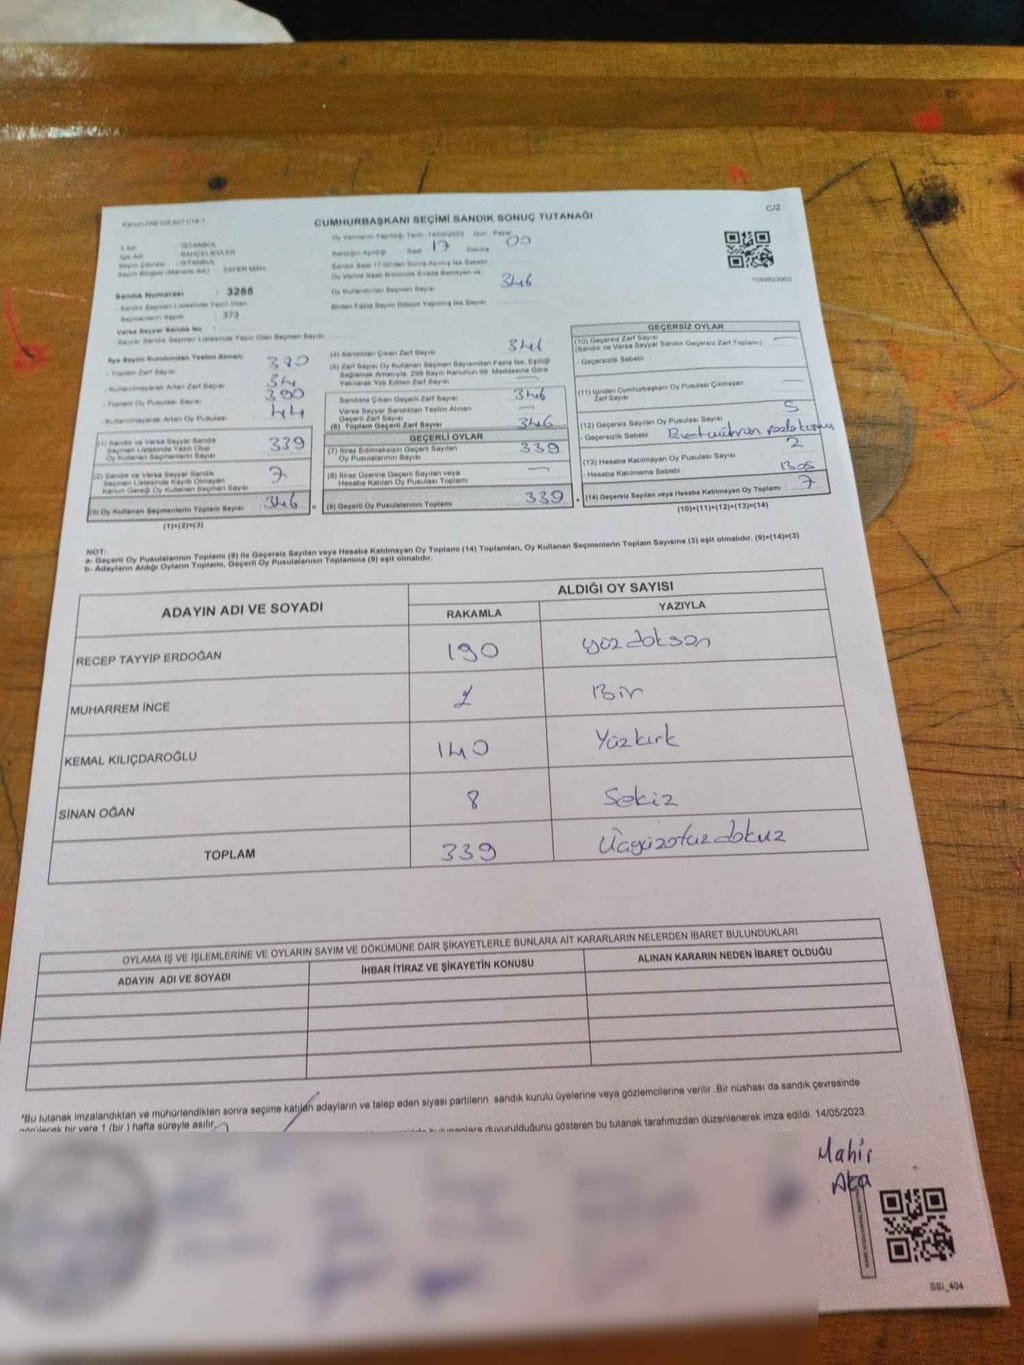 C/2
CUMHURBAŞKANI SEÇİMİ SANDIK SONUÇ TUTANAĞI
Oy Vermenin Yapıldığı Tarih :14/05/2023 Gün: Pazar
İl Adı : İSTANBUL
İlçe Adı BAHÇELİEVLER
Seçim Çevresi : İSTANBUL
Seçim Bölgesi (Mahalle Adı) : ZAFER MAH.
Saat 17 Dakika 00
Oy Kullandırılan Seçmen Sayısı 346
Sandık Numarası : 3255
Sandık Seçmen Listesinde Yazılı Olan
Seçmen Sayısı : 373
Varsa Seyyar Sandık No :
Seyyar Sandık Seçmen Listesinde Yazılı Olan Seçmen Sayısı
İlçe Seçim Kurulundan Teslim Alınan:
- Toplam Zarf Sayısı 380
- Kullanılmayarak Artan Zarf Sayısı 34
- Toplam Oy Pusulası Sayısı
- Kullanılmayarak Artan Oy Pusulası 44
(1) Sandık ve Varsa Seyyar Sandık
Seçmen Listesinde Yazılı Olup
Oy Kullanan Seçmenlerin Sayısı 339
(2) Sandık ve Varsa Seyyar Sandık
Seçmen Listesinde Kayıtlı Olmayan
Kanun Gereği Oy Kullanan Seçmen Sayısı 7
(3) Oy Kullanan Seçmenlerin Toplam Sayısı 346
(1)+(2)=(3)
(4) Sandıktan Çıkan Zarf Sayısı 346
(5) Zarf Sayısı Oy Kullanan Seçmen Sayısından Fazla İse, Eşitliği
Sağlamak Amacıyla, 298 Sayılı Kanunun 98. Maddesine Göre
Yakılarak Yok Edilen Zarf Sayısı —
Sandıkta Çıkan Geçerli Zarf Sayısı 346
Varsa Seyyar Sandıktan Teslim Alınan
Geçerli Zarf Sayısı —
(6) Toplam Geçerli Zarf Sayısı 346
GEÇERLİ OYLAR
(7) İtiraz Edilmeksizin Geçerli Sayılan
Oy Pusulalarının Sayısı 339
(8) İtiraz Üzerine Geçerli Sayılan veya
Hesaba Katılan Oy Pusulaları Toplamı —
(9) Geçerli Oy Pusulalarının Toplamı 339
GEÇERSİZ OYLAR
(10) Geçersiz Zarf Sayısı
(Sandık ve Varsa Seyyar Sandık Geçersiz Zarf Toplamı) —
- Geçersizlik Sebebi
(11) İçinden Cumhurbaşkanı Oy Pusulası Çıkmayan
Zarf Sayısı —
(12) Geçersiz Sayılan Oy Pusulası Sayısı 5
- Geçersizlik Sebebi
(13) Hesaba Katılmayan Oy Pusulası Sayısı 2
- Hesaba Katılmama Sebebi Boş
(14) Geçersiz Sayılan veya Hesaba Katılmayan Oy Toplamı 7
(10)+(11)+(12)+(13)=(14)
NOT:
a- Geçerli Oy Pusulalarının Toplamı (9) ile Geçersiz Sayılan veya Hesaba Katılmayan Oy Toplamı (14) Toplamları, Oy Kullanan Seçmenlerin Toplam Sayısına (3) eşit olmalıdır. (9)+(14)=(3)
b- Adayların Aldığı Oyların Toplamı, Geçerli Oy Pusulalarının Toplamına (9) eşit olmalıdır.
ADAYIN ADI VE SOYADI
ALDIĞI OY SAYISI
RAKAMLA YAZIYLA
RECEP TAYYİP ERDOĞAN 190 yüz doksan
MUHARREM İNCE 1 Bir
KEMAL KILIÇDAROĞLU 140 Yüzkırk
SİNAN OĞAN 8 Sekiz
TOPLAM 339 Üçyüzotuzdokuz
OYLAMA İŞ VE İŞLEMLERİNE VE OYLARIN SAYIM VE DÖKÜMÜNE DAİR ŞİKAYETLERLE BUNLARA AİT KARARLARIN NELERDEN İBARET BULUNDUKLARI
ADAYIN ADI VE SOYADI İHBAR İTİRAZ VE ŞİKAYETİN KONUSU ALINAN KARARIN NEDEN İBARET OLDUĞU
*Bu tutanak imzalandıktan ve mühürlendikten sonra seçime katılan adayların ve talep eden siyasi partilerin sandık kurulu üyelerine veya gözlemcilerine verilir .Bir nüshası da sandık çevresinde
görülecek bir yere 1 (bir ) hafta süreyle asılır.
duyurulduğunu gösteren bu tutanak tarafımızdan düzenlenerek imza edildi. 14/05/2023
Mahir
Ata
SSI_404